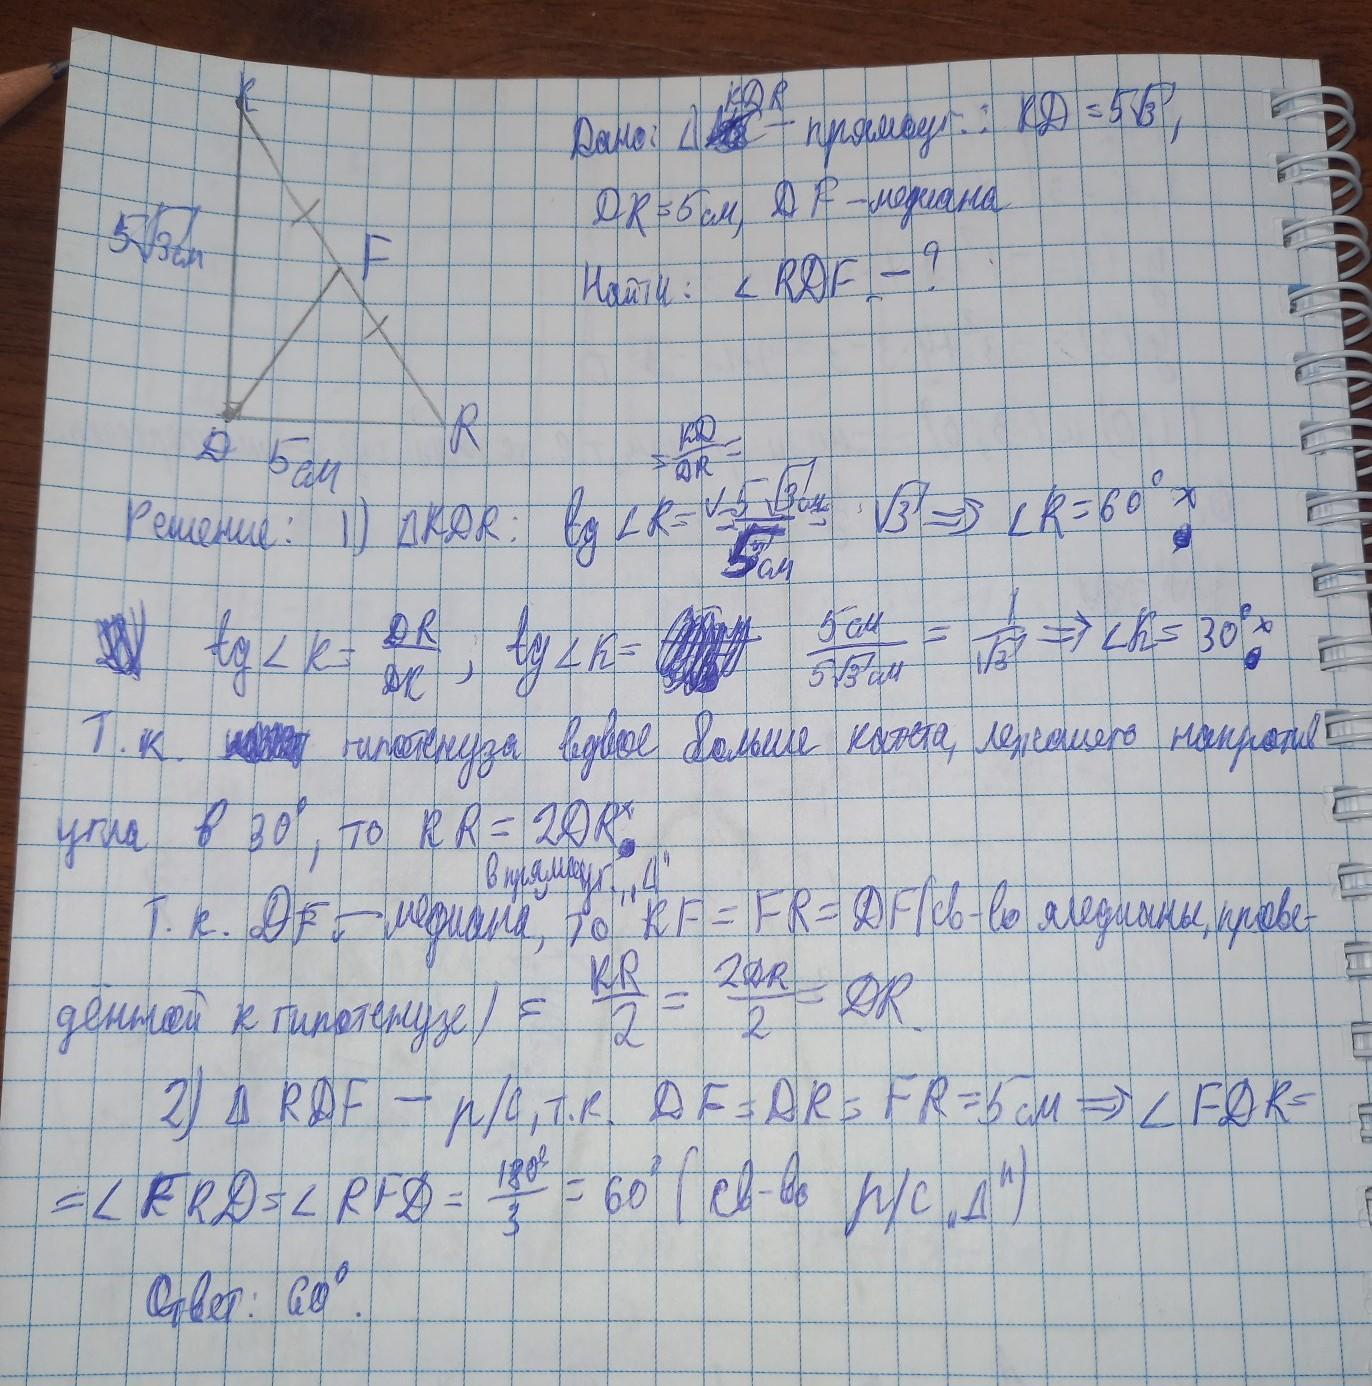 K
KDR
Дано: Δ - прямоуг.: KD = 5√3,
DR = 5 см, DF - медиана
Найти: ∠ RDF - ?
5√3 см
F
D
R
5 см
= KD/DR =
Решение: 1) ΔKDR: tg ∠R = 5√3 см / 5 см = √3 => ∠R = 60°
tg ∠K = DR/DK ; tg ∠K = 5 см / 5√3 см = 1/√3 => ∠K = 30°
Т.к. гипотенуза вдвое больше катета, лежащего напротив
угла в 30°, то KR = 2DR
в прямоуг. "Δ"
Т.к. DF - медиана, то KF = FR = DF (св-во медианы, прове-
дённой к гипотенузе) = KR/2 = 2DR/2 = DR.
2) Δ RDF - р/с, т.к. DF = DR = FR = 5 см => ∠ FDR =
= ∠ FRD = ∠ RFD = 180°/3 = 60° (св-во р/с "Δ")
Ответ: 60°.